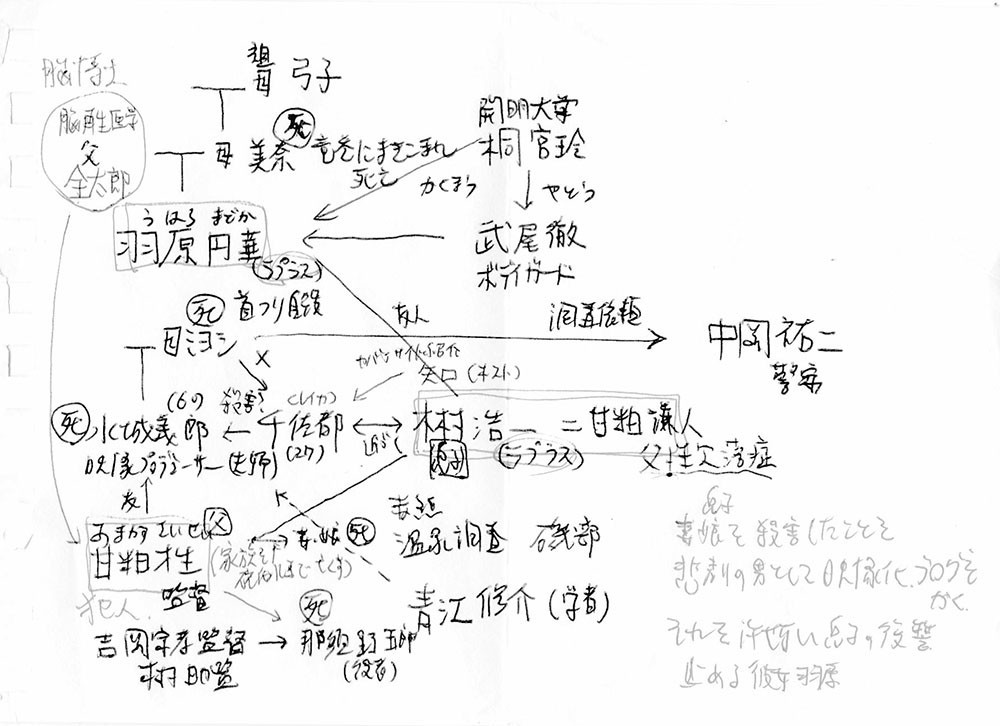 祖母 弓子
脳博士
脳再生医学
父
全太郎
死
母 美奈 竜巻にまきこまれ
死亡
開明大学
桐宮玲
かくまう
やとう
うはら まどか
羽原円華
(ラプラス)
武尾徹
ボディガード
死 首つり自殺
母ミヨシ
友人
調査依頼
中岡祐二
警察
(レイカ)
矢口(ホスト)
死 水城義郎
殺害
千佐都
映像プロデューサー
木村浩一 = 甘粕謙人
息子
(ラプラス)
父性欠落症
友
父
甘粕才生
監督
妻 娘 死
温泉調査 磯部
青江修介(学者)
犯人
死
吉岡宗孝監督 → 那須野五郎
(役者)
助監
息子
妻娘を殺害したことを
悲劇の男として映像化、ブログを
かく
それを許せない息子の復讐
止める彼女羽原